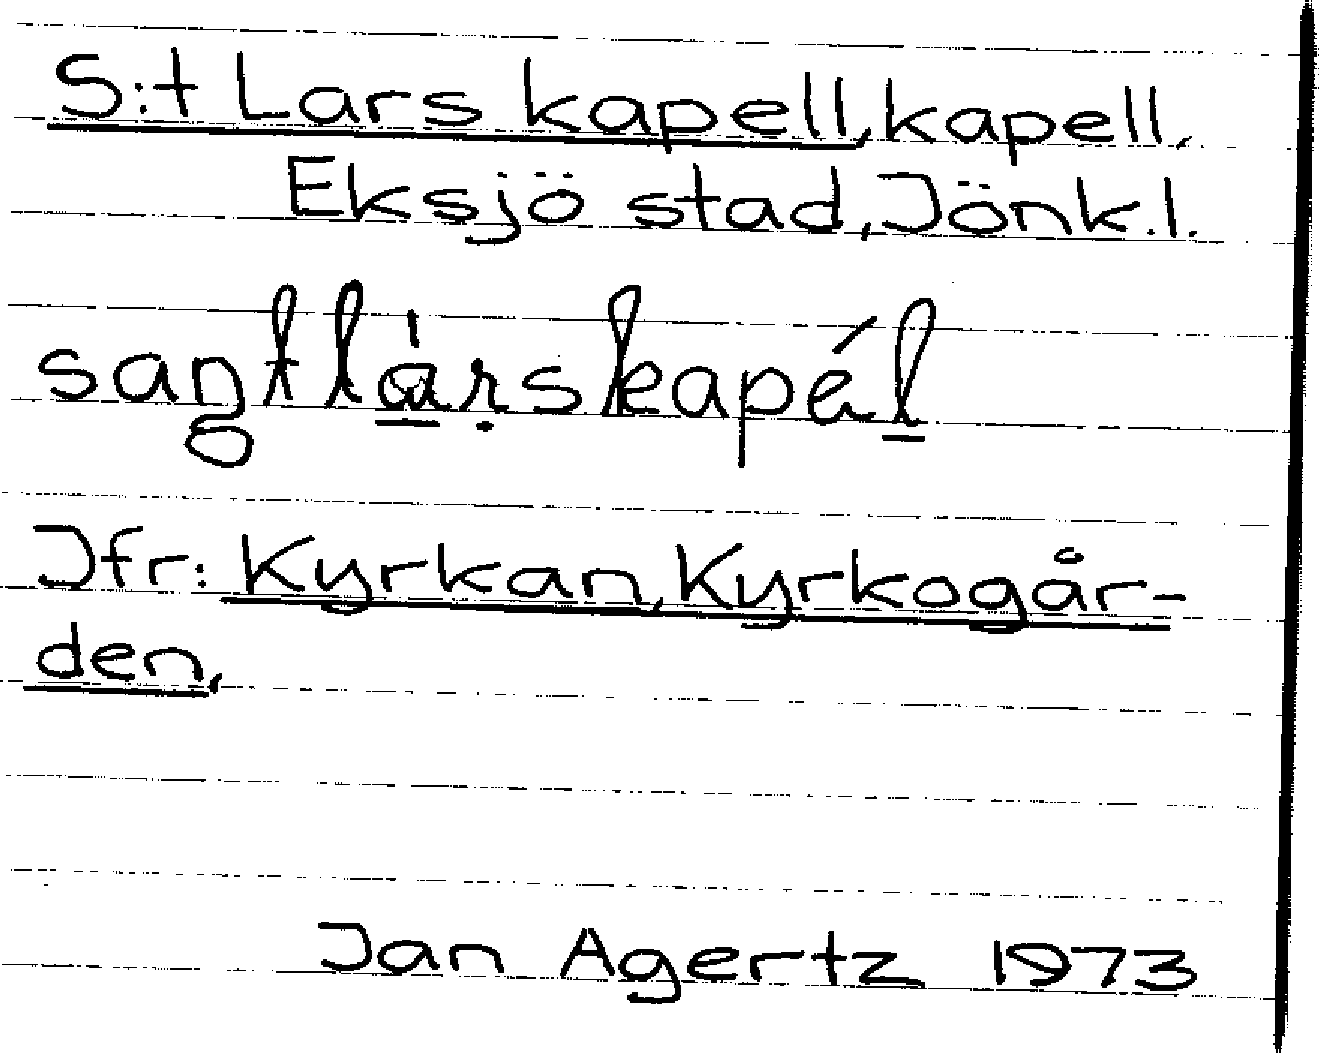 S:t Lars kapell, kapell,
Eksjö stad, Jönk.l.
saŋtlárskapél
Jfr: Kyrkan, Kyrkogår-
den,
Jan Agertz 1973